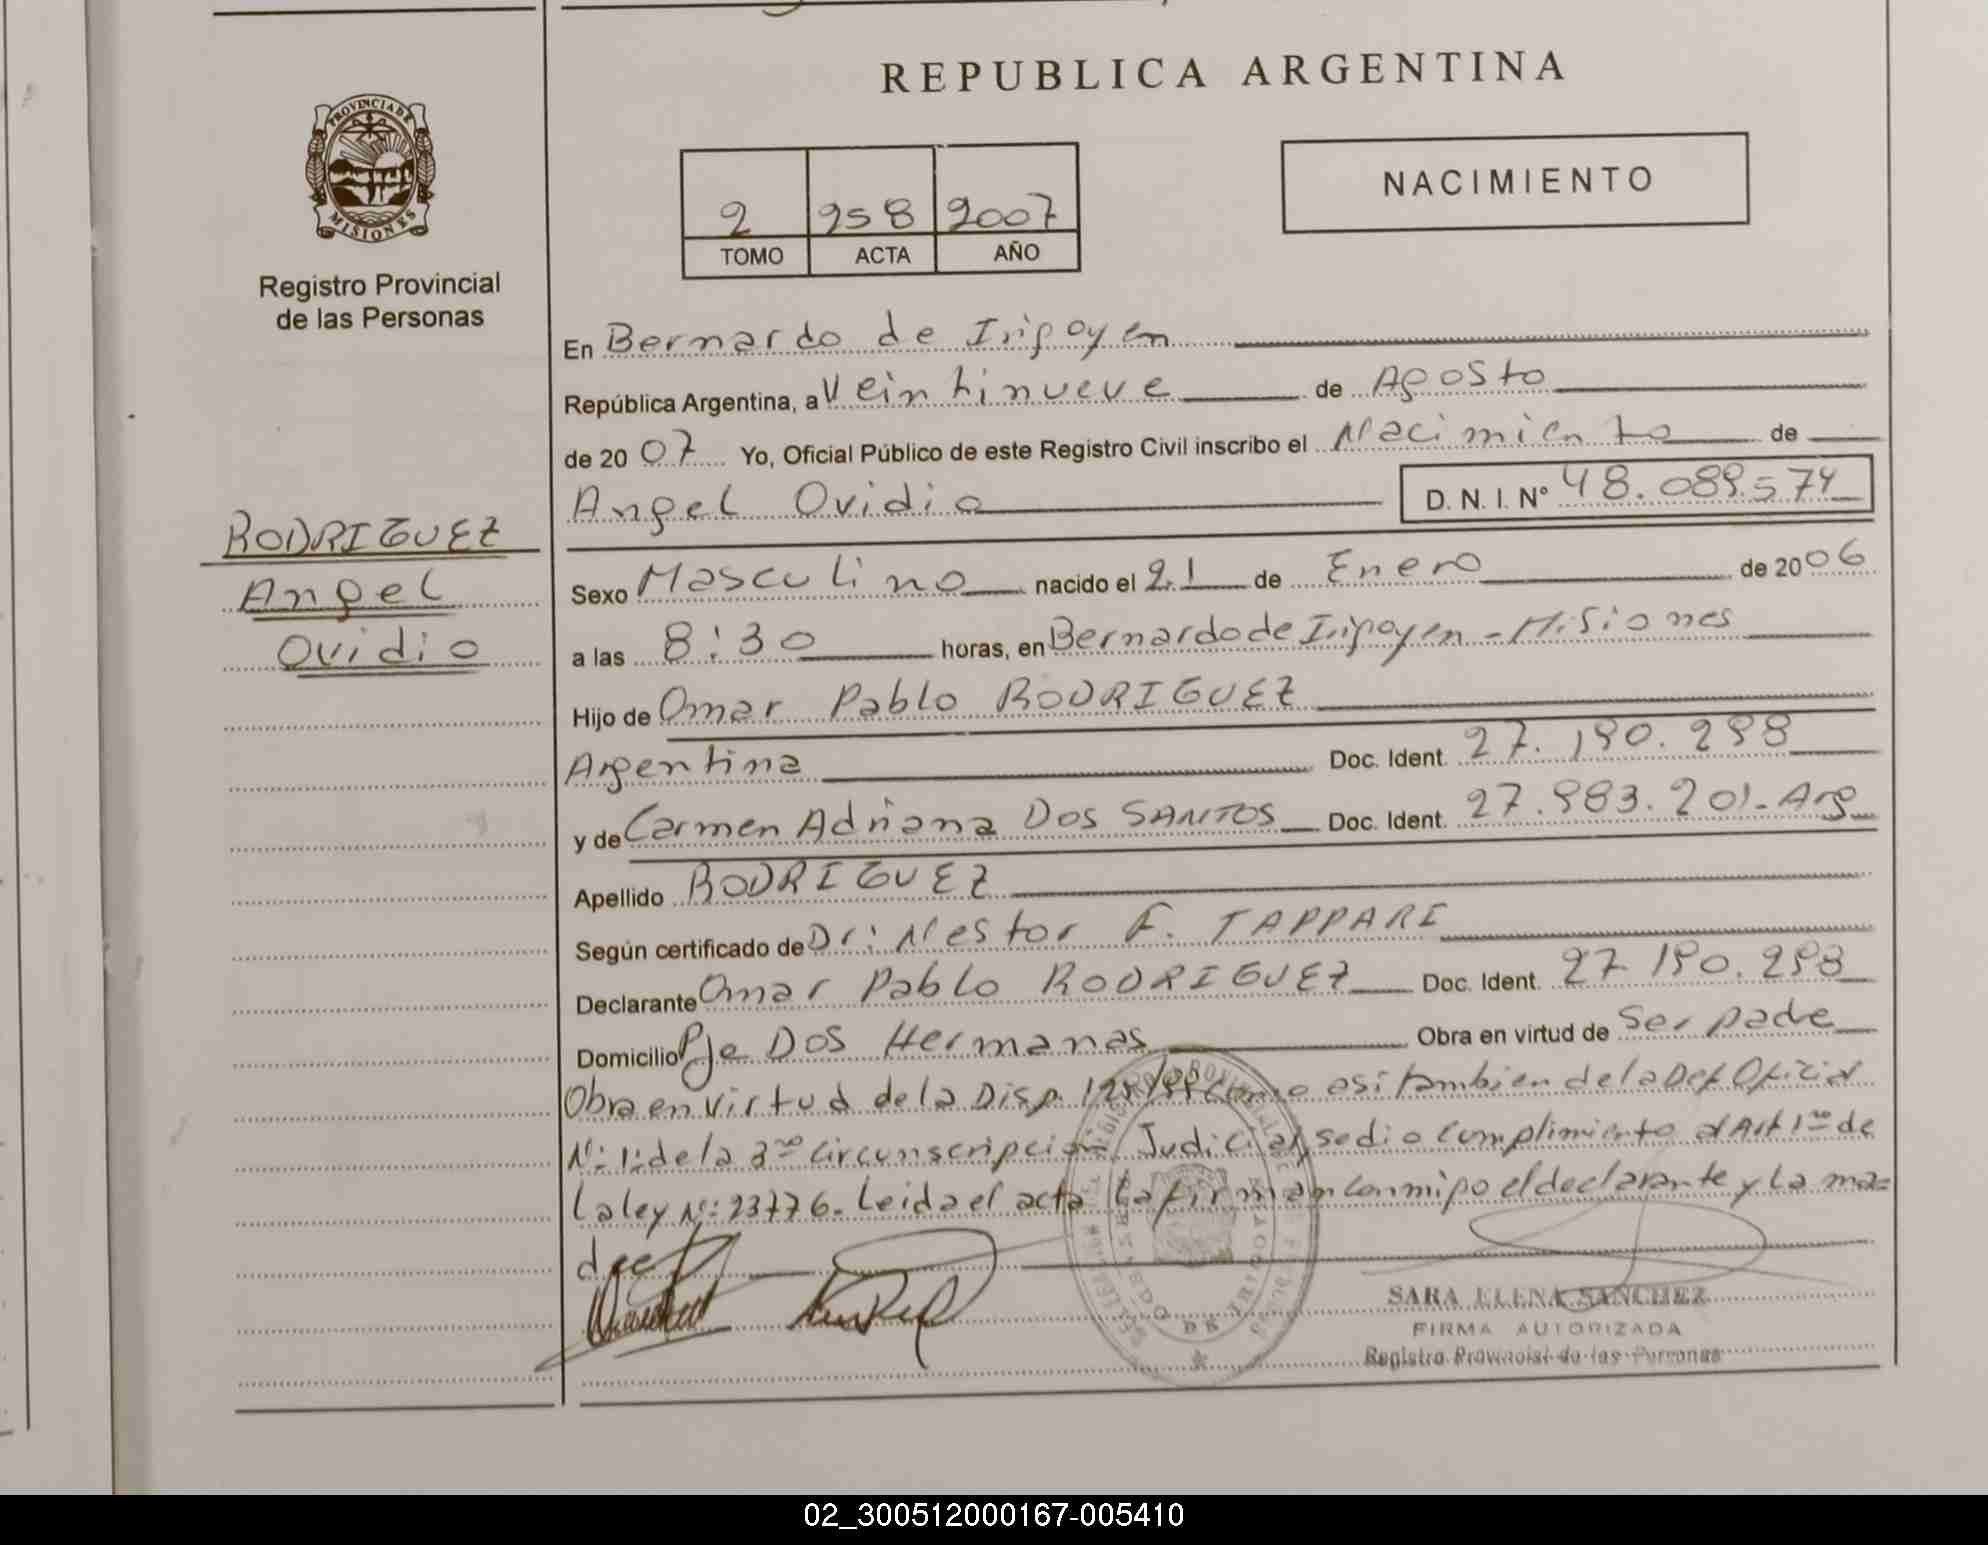 REPUBLICA ARGENTINA
PROVINCIA DE
MISIONES
Registro Provincial
de las Personas
NACIMIENTO
2 258 2007
TOMO ACTA AÑO
En Bernardo de Irigoyen
República Argentina, a Veintinueve de Agosto
de 2007 Yo, Oficial Público de este Registro Civil inscribo el Nacimiento de
Angel Ovidio D. N. I. N° 48.089.574
RODRIGUEZ
Angel
Ovidio
Sexo Masculino nacido el 21 de Enero de 2006
a las 8:30 horas, en Bernardo de Irigoyen - Misiones
Hijo de Omar Pablo RODRIGUEZ
Argentina Doc. Ident. 27.190.298
y de Carmen Adriana DOS SANTOS Doc. Ident. 27.983.201- Arg
Apellido RODRIGUEZ
Según certificado de Dr: Nestor F. TAPPARI
Declarante Omar Pablo RODRIGUEZ Doc. Ident. 27.190.298
Domicilio Pje Dos Hermanas Obra en virtud de Ser padre
Obra en virtud de la Disp. como asi tambien de la Def Oficial
N: 1: de la 3ra circunscripcion Judicial, se dio cumplimiento al Art 1ro de
La ley N: 23776. Leida el acta La firman con mi go el declarante y La ma=
dre
SARA ELENA SANCHEZ
FIRMA AUTORIZADA
Registro Provincial de las Personas
02_300512000167-005410